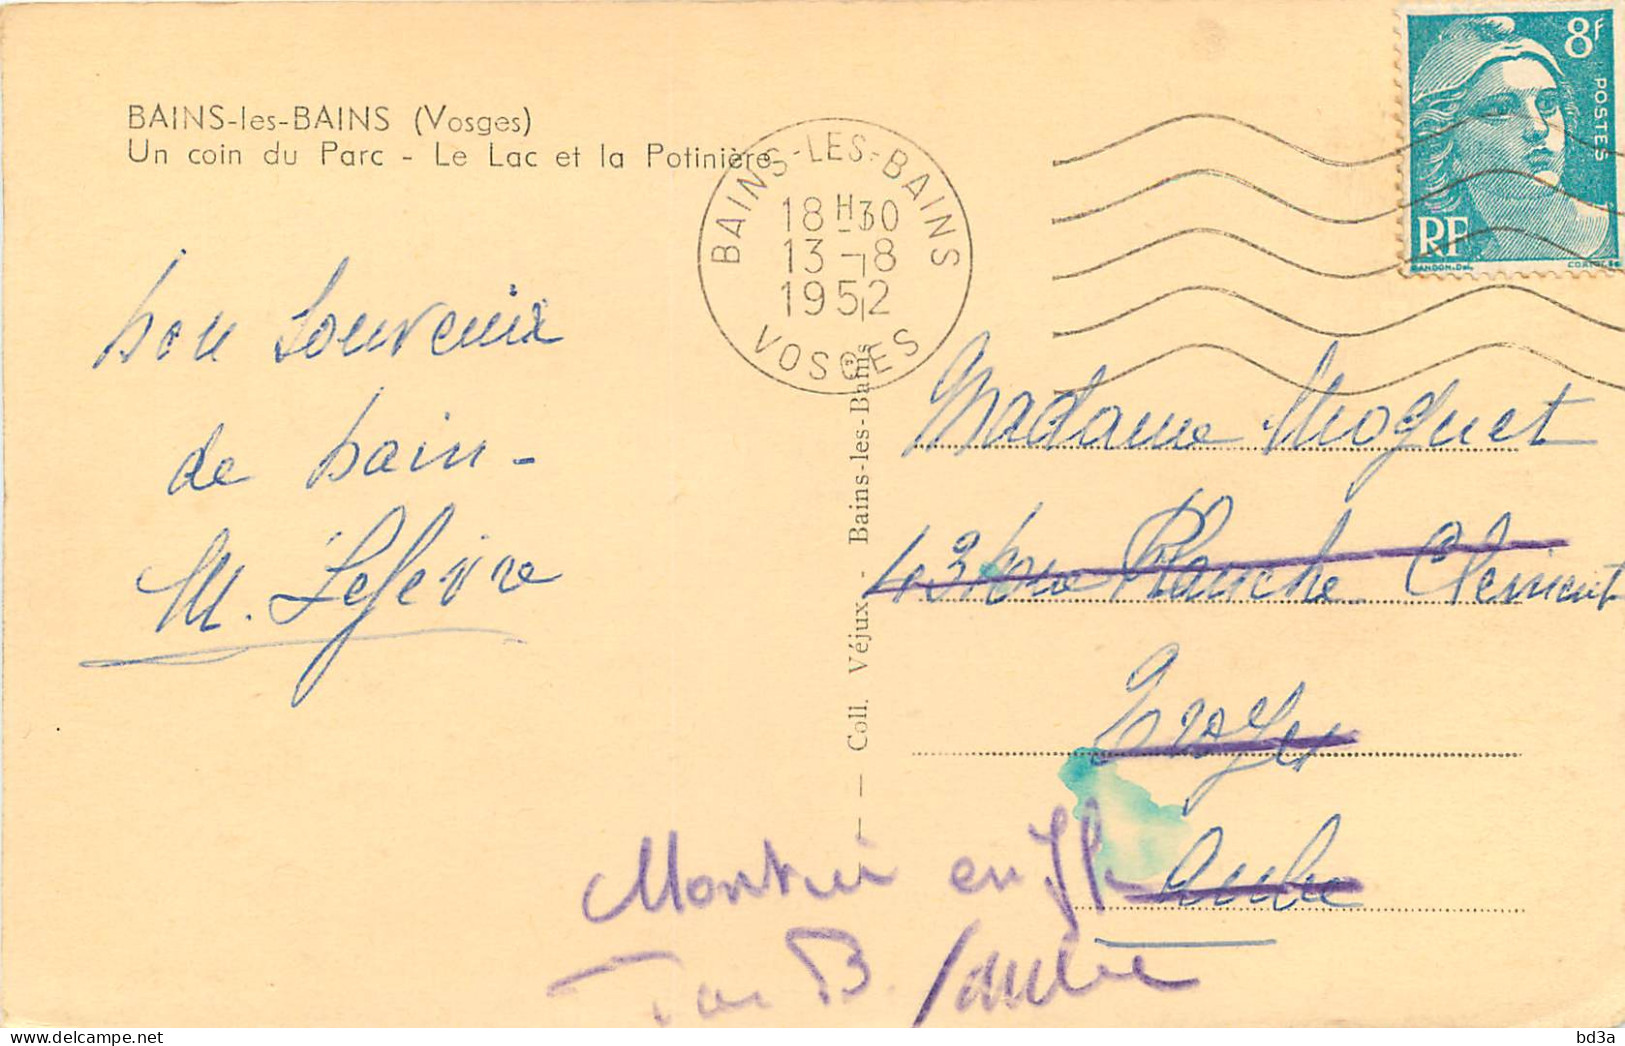 BAINS-les-BAINS (Vosges)
Un coin du Parc - Le Lac et la Potinière
BAINS-LES-BAINS
18 H 30
13 - 8
1952
VOSGES
8F
POSTES
RF
GANDON. Del.
bon Souvenir
de bain -
M. Lefèvre
— Coll. Véjux - Bains-les-Bains
Madame Moguet
43 Rue Planche Clement
Troyes
Aube
Montier en
par B. /aube
bd3a